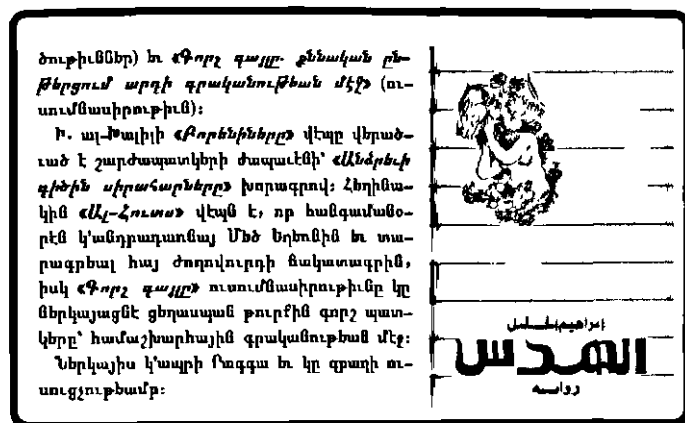 ծութիւններ) եւ «Գորշ գայլը. քննական ըն-
թերցում արդի գրականութեան մէջ» (ու-
սումնասիրութիւն):
Ի. ալ-Խալիլի «Բորենիները» վէպը վերած-
ւած է շարժապատկերի ժապաւէնի՝ «Անձրեւի
գիծին սիրահարները» խորագրով: Հեղինա-
կին «Ալ-Հուտս» վէպն է, որ հանգամանօ-
րէն կ'անդրադառնայ Մեծ Եղեռնին եւ տա-
րագրեալ հայ ժողովուրդի ճակատագրին,
իսկ «Գորշ գայլը» ուսումնասիրութիւնը կը
ներկայացնէ ցեղասպան թուրքին գորշ պատ-
կերը՝ համաշխարհային գրականութեան մէջ:
Ներկայիս կ'ապրի Րագգա եւ կը զբաղի ու-
սուցչութեամբ:
إبراهيم الخليل
الهدس
رواية